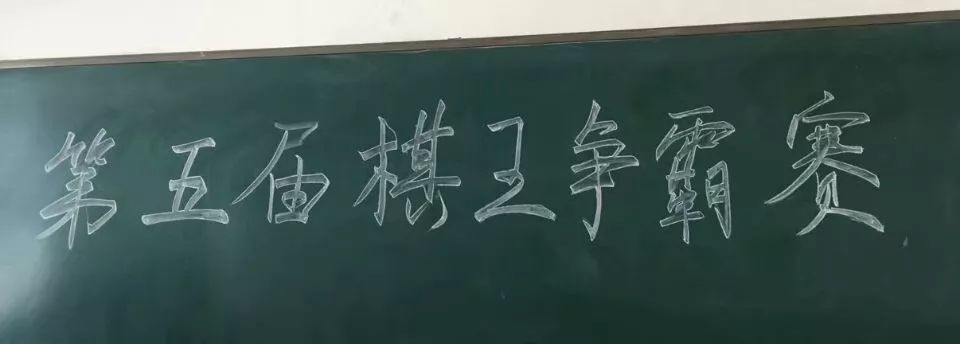 第五届棋王争霸赛